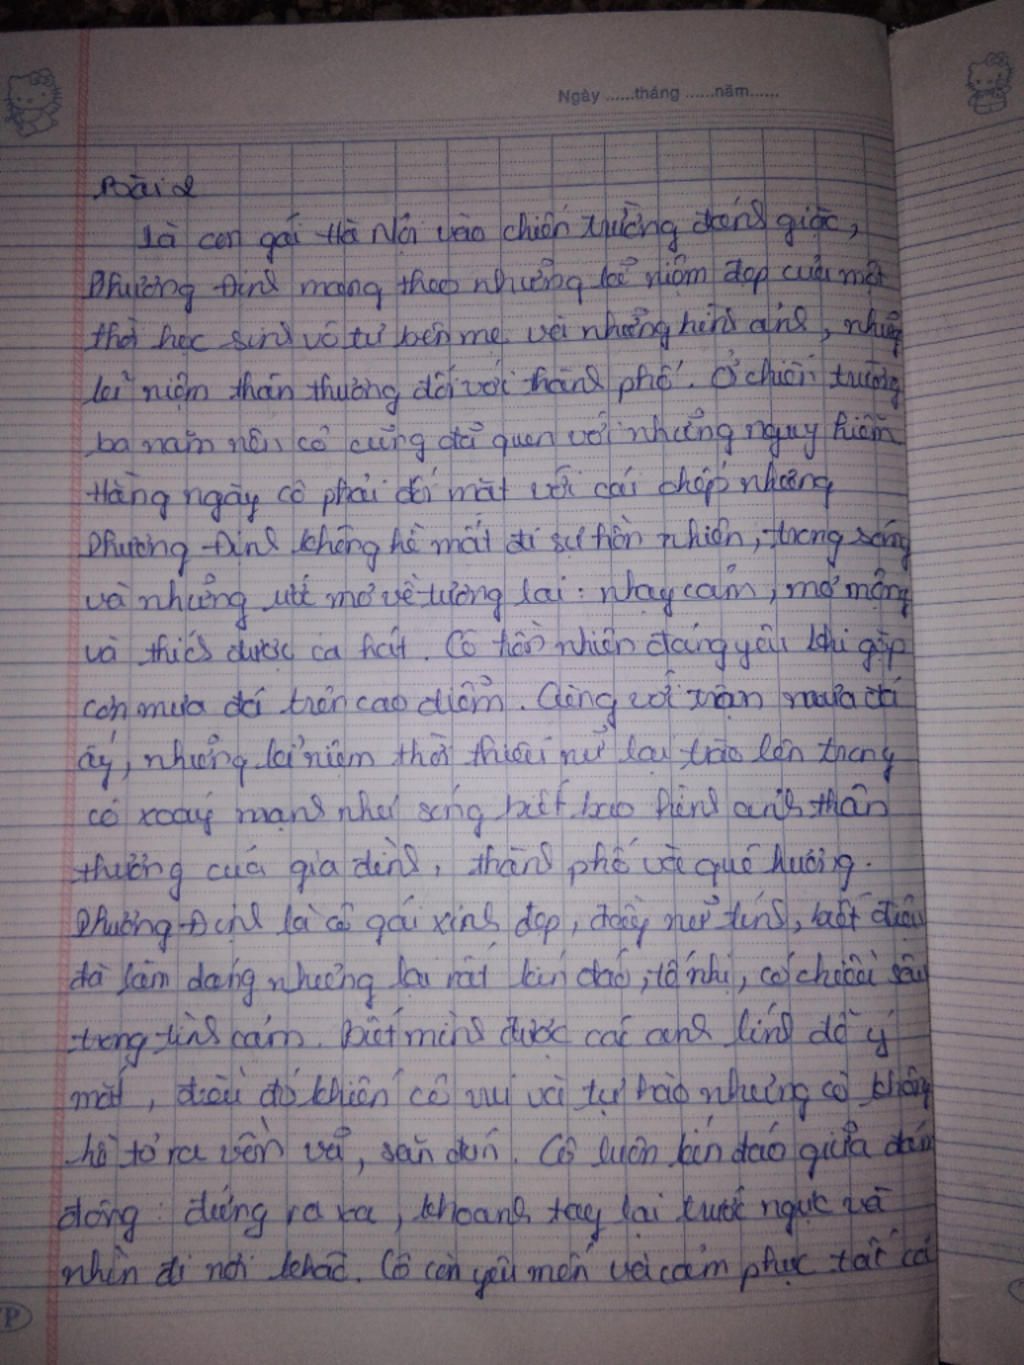 Ngày ......tháng ......năm......
Bài 2
Là con gái Hà Nội vào chiến trường đánh giặc,
Phương Định mang theo những kỉ niệm đẹp của một
thời học sinh vô tư bên mẹ với những hình ảnh, những
kỉ niệm thân thương đối với thành phố. Ở chiến trường
ba năm nên cô cũng đã quen với những nguy hiểm
Hàng ngày cô phải đối mặt với cái chết nhưng
Phương Định không hề mất đi sự hồn nhiên, trong sáng
và những ước mơ về tương lai: nhạy cảm, mơ mộng
và thích được ca hát. Cô hồn nhiên đáng yêu khi gặp
cơn mưa đá trên cao điểm. Cùng với trận mưa đá
ấy, những kỉ niệm thời thiếu nữ lại trào lên trong
cô xoáy mạnh như sóng biết bao hình ảnh thân
thương của gia đình, thành phố và quê hương.
Phương Định là cô gái xinh đẹp, đầy nữ tính, biết điệu
đà làm dáng nhưng lại rất kín đáo, tế nhị, có chiều sâu
trong tình cảm. Biết mình được các anh lính để ý
mắt, điều đó khiến cô vui và tự hào nhưng cô không
hề tỏ ra vồn vã, săn đón. Cô luôn kín đáo giữa đám
đông: đứng ra xa, khoanh tay lại trước ngực và
nhìn đi nơi khác. Cô còn yêu mến và cảm phục tất cả